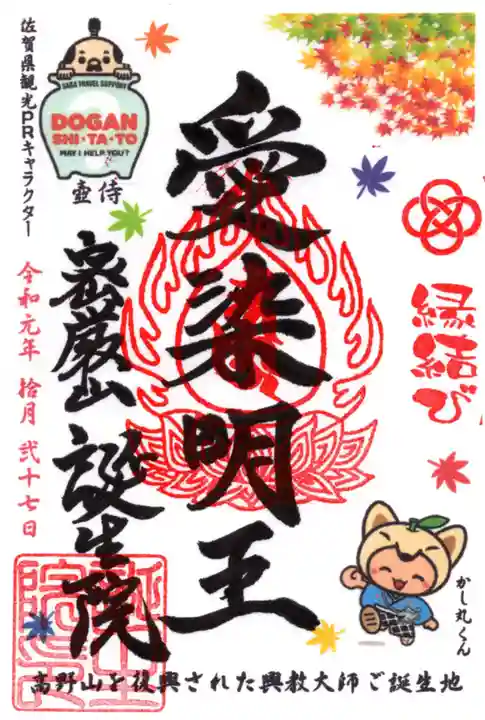 縁結び
愛染明王
密厳山 誕生院
令和元年 拾月 弐十七日
佐賀県観光PRキャラクター
SAGA TRAVEL SUPPORT
DOGAN
SHI・TA・TO
MAY I HELP YOU?
壺侍
かし丸くん
高野山を復興された興教大師ご誕生地